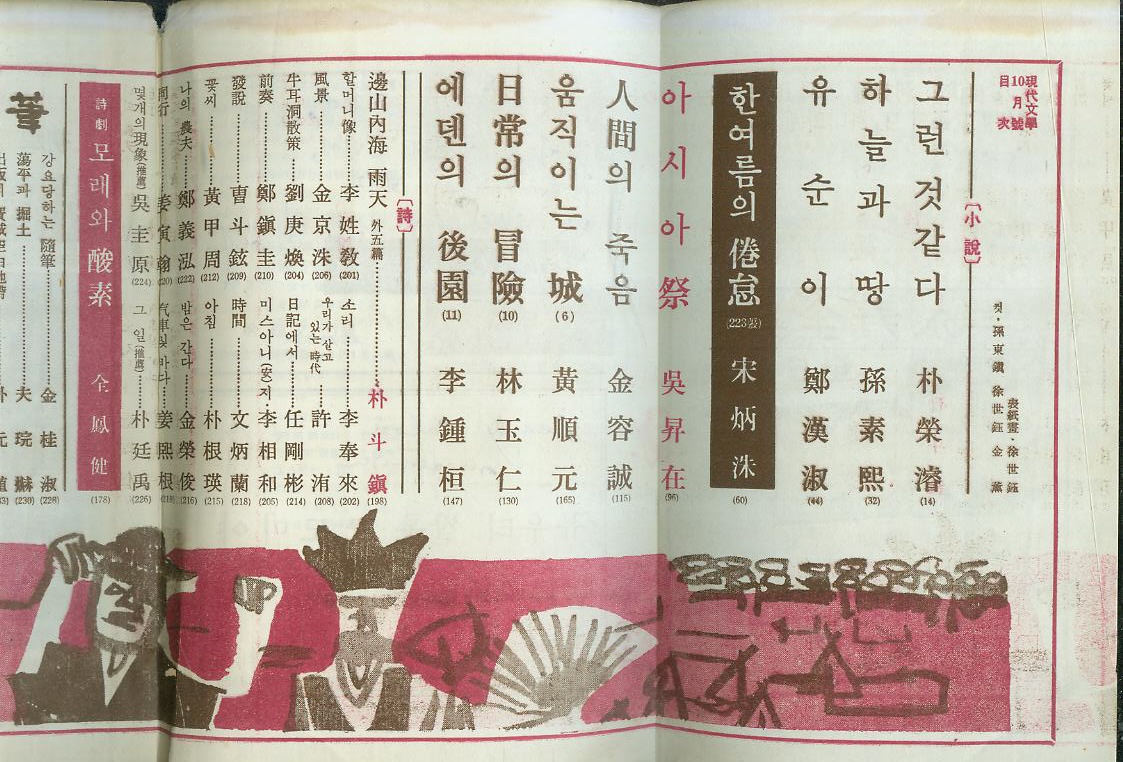 現代文學
10月號
目次
컷·孫東鎭 徐世鈺 金薰
表紙畫·徐世鈺
[小說]
그런 것 같다 朴榮濬 (14)
하늘과 땅 孫素熙 (32)
유순이 鄭漢淑 (44)
한여름의 倦怠 (223張) 宋炳洙 (60)
아시아祭 吳昇在 (96)
人間의 죽음 金容誠 (115)
움직이는 城 (6) 黃順元 (165)
日常의 冒險 (10) 林玉仁 (130)
에덴의 後園 (11) 李鍾桓 (147)
[詩]
邊山內海 雨天 外五篇 朴斗鎭 (198)
할머니像 李姓敎 (201)
소리 李奉來 (202)
風景 金京洙 (206)
우리가 살고 있는 時代 許洧 (208)
牛耳洞散策 劉庚煥 (204)
日記에서 任剛彬 (214)
前奏 鄭鎭圭 (210)
미스아니(安)지 李相和 (205)
發說 曺斗鉉 (209)
時間 文炳蘭 (218)
꽃씨 黃甲周 (212)
아침 朴根瑛 (215)
나의 農夫 鄭義泓 (222)
밤은 간다 金榮俊 (216)
同行 姜寅翰 (220)
汽車및 바다 姜熙根
몇개의 現象(推薦) 吳圭原 (224)
그 일(推薦) 朴廷禹 (226)
詩劇 모래와 酸素 全鳳健 (178)
강요당하는 隨筆 金桂淑 (228)
蕩平과 掘土 夫琓爀 (230)